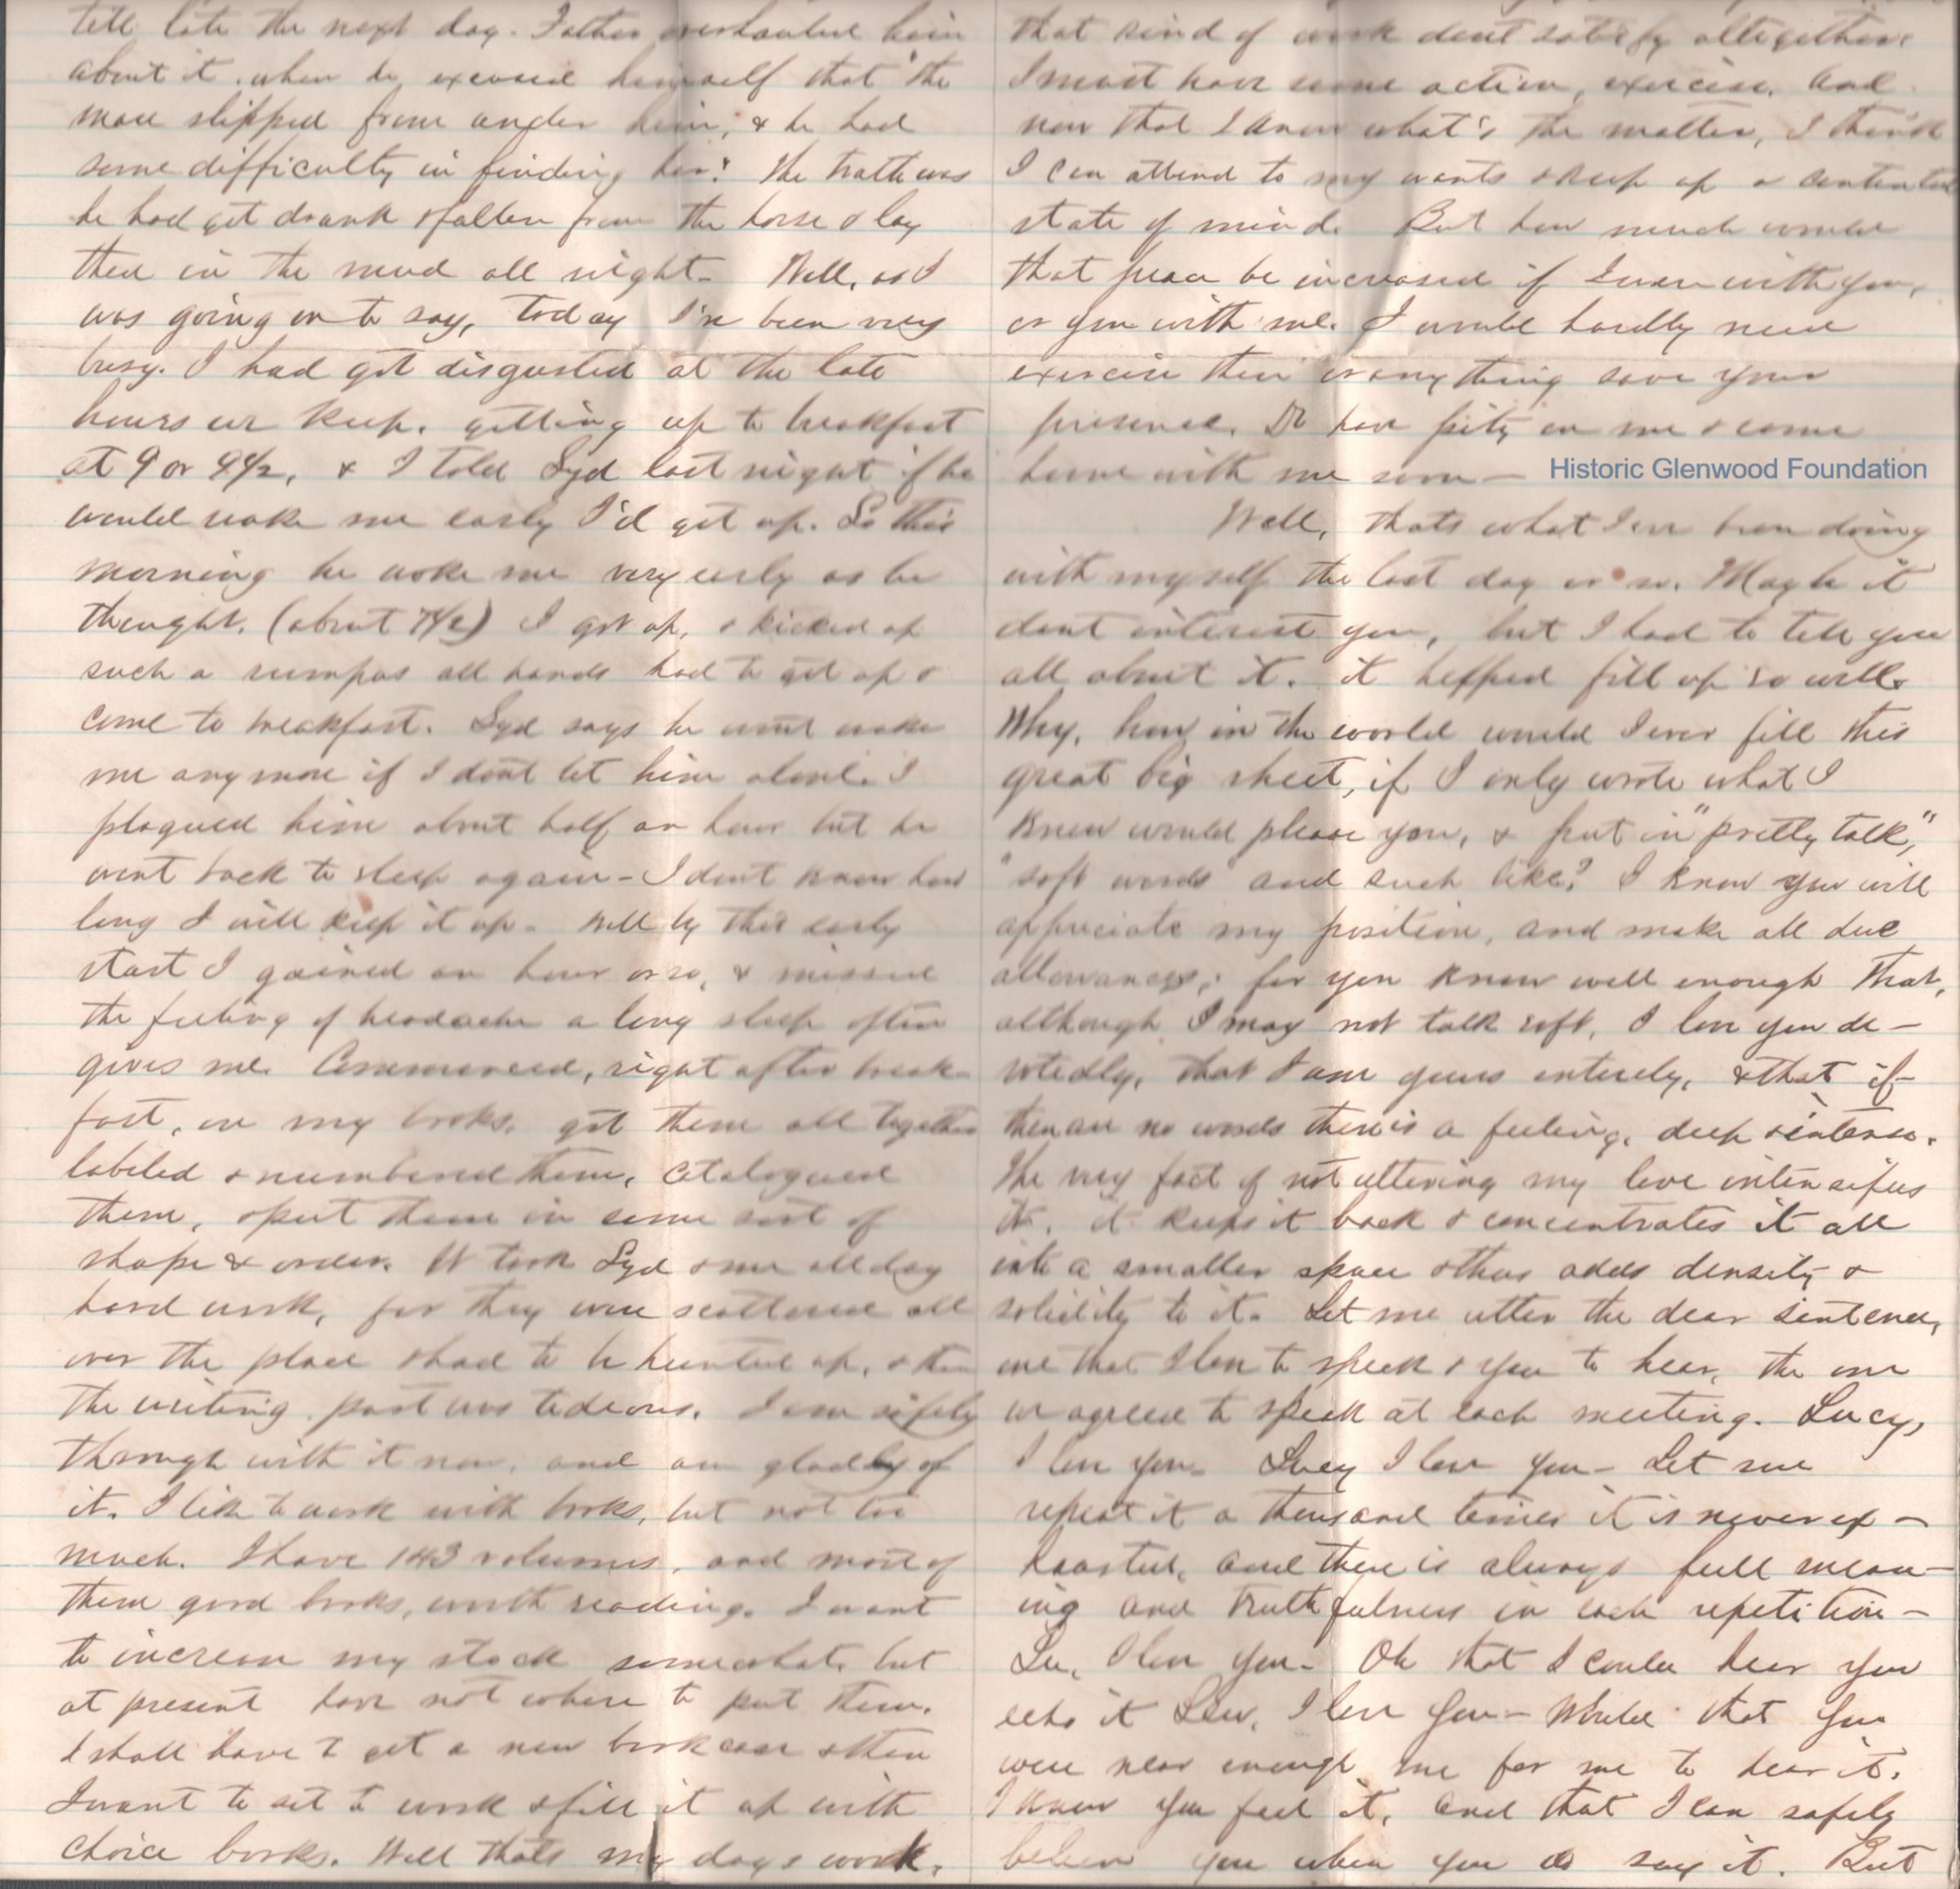 till late the next day. Father overhauled him
about it, when he excused himself that "the
mare slipped from under him, & he had
some difficulty in finding her." The truth was
he had got drunk & fallen from the horse & lay
there in the mud all night. Well, as I
was going on to say, today I've been very
busy. I had got disgusted at the late
hours we keep, getting up to breakfast
at 9 or 9 1/2, & I told Syd last night if he
would wake me early I'd get up. So this
morning he woke me very early as he
thought. (about 7 1/2) I got up, & kicked up
such a rumpus all hands had to get up &
come to breakfast. Syd says he wont wake
me any more if I dont let him alone. I
plagued him about half an hour but he
went back to sleep again - I dont know how
long I will keep it up - Well by this early
start I gained an hour or so, & missed
the feeling of headache a long sleep often
gives me. Commenced, right after break-
fast, on my books, got them all together
labeled & numbered them, catalogued
them, & put them in some sort of
shape & order. It took Syd & me all day
hard work, for they were scattered all
over the place & had to be hunted up, & then
the writing part was tedious. I am safely
through with it now, and am glad of
it. I like to work with books, but not too
much. I have 143 volumes, and most of
them good books, worth reading. I want
to increase my stock somewhat, but
at present have not where to put them.
I shall have to get a new bookcase & then
I want to set to work & fill it up with
choice books. Well thats my days work,
that kind of work dont satisfy altogether.
I must have some action, exercise. And
now that I know what's the matter, I think
I can attend to my wants & keep up a contented
state of mind. But how much would
that peace be increased if I were with you,
or you with me. I would hardly need
exercise then or anything save your
presence. Do have pity on me & come
home with me soon —
Historic Glenwood Foundation
Well, thats what Ive been doing
with myself the last day or so. Maybe it
dont interest you, but I had to tell you
all about it. it helped fill up so well.
Why, how in the world would I ever fill this
great big sheet, if I only wrote what I
knew would please you, & put in "pretty talk,"
"soft words" and such like? I know you will
appreciate my position, and make all due
allowances; for you know well enough that,
although I may not talk soft, I love you de-
votedly, that I am yours entirely, & that if
there are no words there is a feeling, deep & intense.
The very fact of not uttering my love intensifies
it. it keeps it back & concentrates it all
into a smaller space & thus adds density &
solidity to it. Let me utter the dear sentence,
one that I love to speak & you to hear, the one
we agreed to speak at each meeting. Lucy,
I love you - Lucy I love you - Let me
repeat it a thousand times it is never ex-
hausted, and there is always full mean-
ing and truthfulness in each repetition -
Lu, I love you - Oh that I could hear you
echo it Lew, I love you - Would that you
were near enough me for me to hear it.
I know you feel it, and that I can safely
believe you when you do say it. But